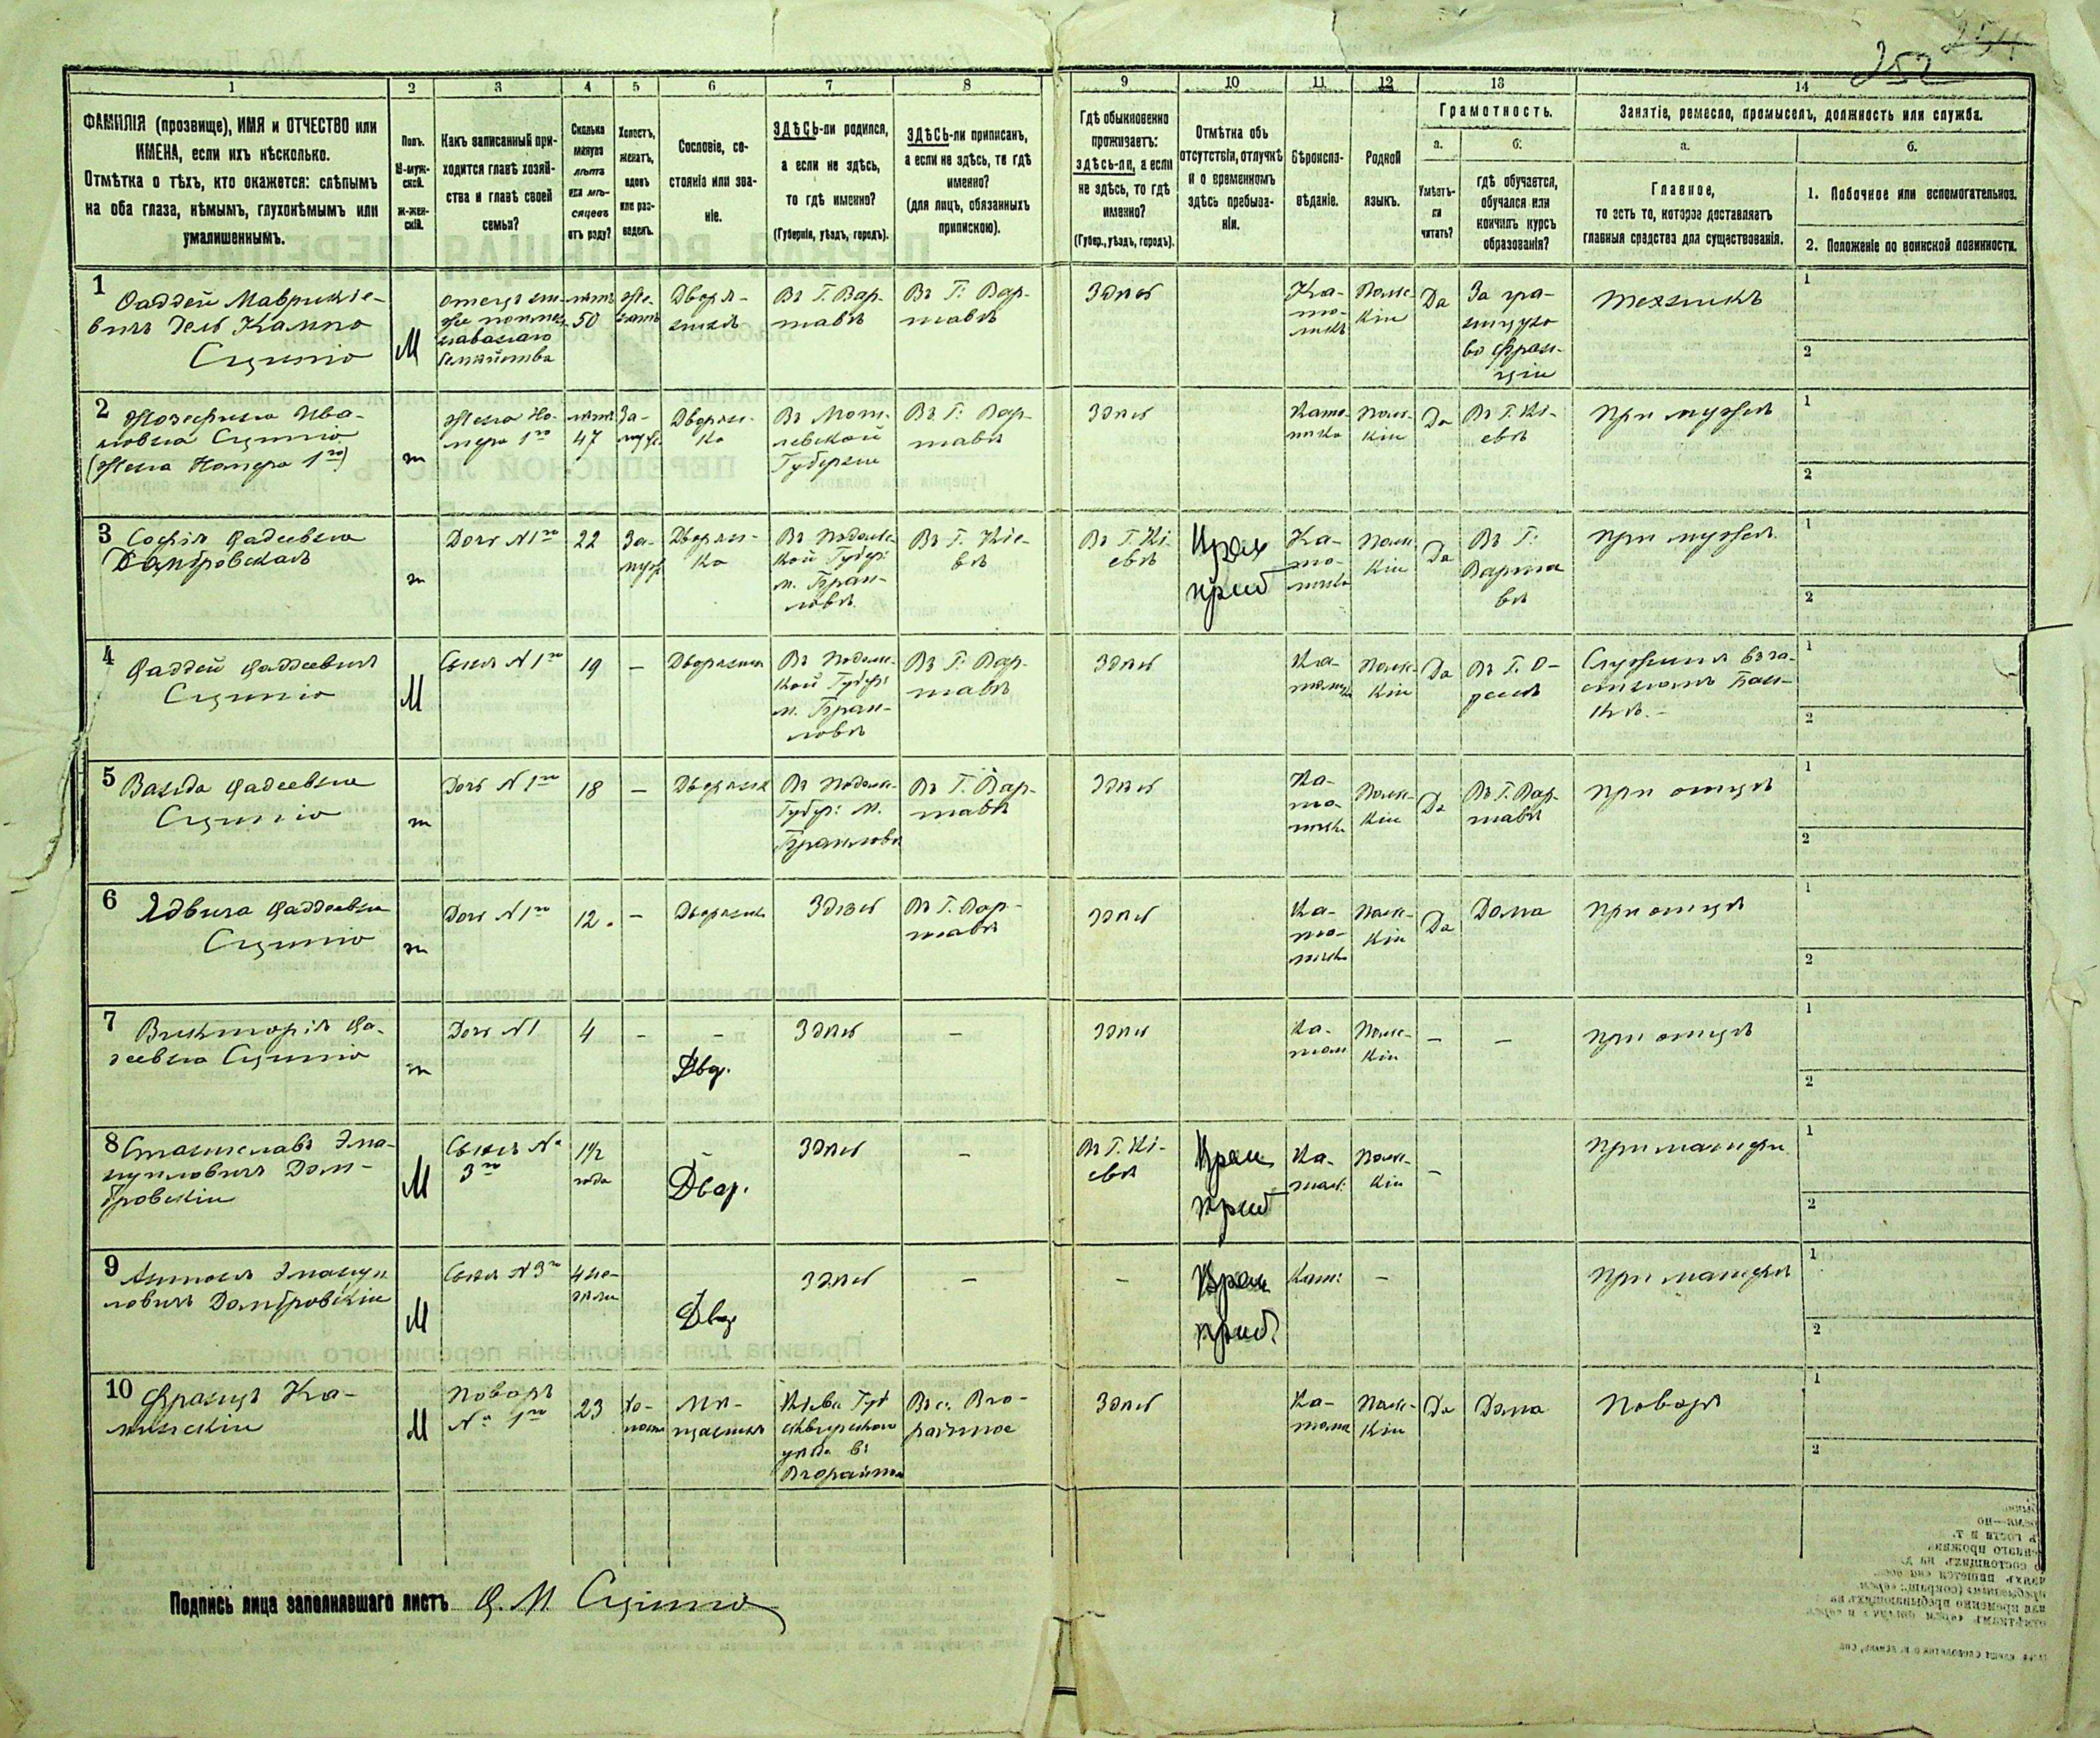 252
1 2 3 4 5 6 7 8 9 10 11 12 13 14
ФАМИЛІЯ (прозвище), ИМЯ и ОТЧЕСТВО или
ИМЕНА, если ихъ нѣсколько.
Отмѣтка о тѣхъ, кто окажется: слѣпымъ
на оба глаза, нѣмымъ, глухонѣмымъ или
умалишеннымъ.
Полъ.
М-муж-
ской.
ж-жен-
скій.
Какъ записанный при-
ходится главѣ хозяй-
ства и главѣ своей
семьи?
Сколько
минуло
лѣтъ
или мѣ-
сяцевъ
отъ роду?
Холостъ,
женатъ,
вдовъ
или раз-
веденъ.
Сословіе, со-
стояніе или зва-
ніе.
ЗДѢСЬ-ли родился,
а если не здѣсь,
то гдѣ именно?
(Губернія, уѣздъ, городъ).
ЗДѢСЬ-ли приписанъ,
а если не здѣсь, то гдѣ
именно?
(для лицъ, обязанныхъ
припискою).
Гдѣ обыкновенно
проживаетъ:
здѣсь-ли, а если
не здѣсь, то гдѣ
именно?
(Губер., уѣздъ, городъ).
Отмѣтка объ
отсутствіи, отлучкѣ
и о временномъ
здѣсь пребыва-
ніи.
Вѣроиспо-
вѣданіе.
Родной
языкъ.
Грамотность.
а.
Умѣетъ-
ли
читать?
б.
гдѣ обучается,
обучался или
кончилъ курсъ
образованія?
Занятіе, ремесло, промыселъ, должность или служба.
а.
Главное,
то есть то, которое доставляетъ
главныя средства для существованія.
б.
1. Побочное или вспомогательное.
2. Положеніе по воинской повинности.
1
Фаддей Маврикіе-
вичъ дель Кампо
Сципіо
М
50
Же-
натъ
Дворя-
нинъ
Въ Г. Вар-
шавѣ
Въ Г. Вар-
шавѣ
Здѣсь
Ка-
то-
ликъ
Польс-
кій
Да
За гра-
ницую
во Фран-
ціи
Техникъ
1
2
2
Жозефина Ива-
новна Сципіо
(Жена Номера 1го)
ж
Жена Но-
мера 1го
лѣтъ
47
За-
муж.
Дворян-
ка
Въ Могi-
левской
Губерніи
Въ Г. Вар-
шавѣ
Здѣсь
Като-
личка
Польс-
кій
Да
Въ Г. Кі-
евѣ
При мужѣ
1
2
3
Софія Фадеевна
Домбровская
ж
Дочь N 1го
22
За-
муж.
Дворян-
ка
Въ Подольс-
кой Губер:
м. Браи-
ловѣ
Въ Г. Кіе-
вѣ
Въ Г. Кі-
евѣ
Врем
преб
Ка-
то-
личка
Польс
кій
Да
Въ Г.
Варша
вѣ
При мужѣ
1
2
4
Фаддей Фаддеевичъ
Сципіо
М
Сынъ N 1го
19
—
Дворянинъ
Въ Подольс-
кой Губер:
м. Браи-
ловѣ
Въ Г. Вар-
шавѣ
Здѣсь
Ка-
толикъ
Польс-
кій
Да
Въ Г. О-
дессѣ
1
2
5
Ванда Фадеевна
Сципіо
ж
Дочь N 1го
18
—
Дворянк
Въ Подольс-
Губер: м.
Браиловѣ
Въ Г. Вар-
шавѣ
Здѣсь
Ка-
то-
личка
Польс-
кій
Да
Въ Г. Вар-
шавѣ
При отцѣ
1
2
6
Ядвига Фаддеевна
Сципіо
ж
Дочь N 1го
12
—
Дворянк
Здѣсь
Въ Г. Вар-
шавѣ
Здѣсь
Ка-
то-
личка
Польс-
кій
Да
Дома
При отцѣ
1
2
7
Викторія Фа-
деевна Сципіо
ж
Дочь N 1
4
—
—
Двор.
Здѣсь
—
Здѣсь
Ка-
тол
Польс-
кій
—
—
При отцѣ
1
2
8
Станиславъ Эма-
нуиловичъ Дом-
бровскій
М
Сынъ №
3го
1 1/2
года
—
Двор.
Здѣсь
—
Въ Г. Кі-
евѣ
Врем
преб
Ка-
тол:
Польс-
кій
—
При матери
1
2
9
Антонъ Эмануи
ловичъ Домбровскій
М
Сынъ N 3го
4 не-
дѣли
Двор
Здѣсь
—
—
Врем
преб.
Кат:
—
При матери
1
2
10
Францъ Ка-
минскій
М
Поваръ
№ 1го
23
Хо-
лостъ
Мѣ-
щанинъ
Здѣсь
Польс-
кій
Да
Дома
Поваръ
1
2
Подпись лица заполнявшаго листъ Ф. М. Сципіо